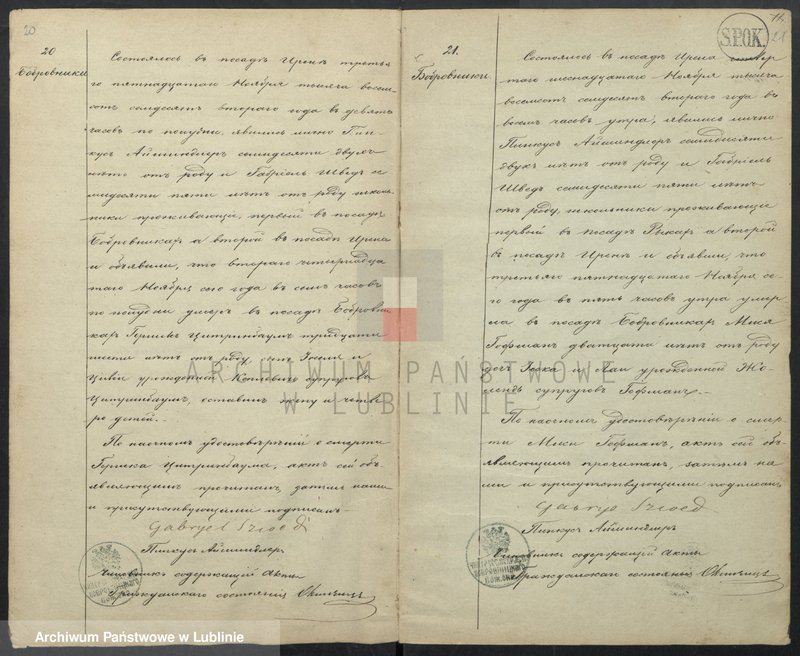 20
20
Бобровники
Состоялось въ посадѣ Иренѣ третья
го пятнадцатаго Ноября тысяча восем
сотъ семдесятъ втораго года въ девять
часовъ по полудни, явились лично Пин
кусъ Айсминдлеръ семидесяти двухъ
лѣтъ отъ роду и Габріель Шведъ се
мидесяти пяти лѣтъ отъ роду школь
ники проживающіе, первый въ посадѣ
Бобровникахъ а второй въ посадѣ Ирена
и объявили, что втораго четырнадца
таго Ноября сего года въ семь часовъ
по полудни умеръ въ посадѣ Бобровни
кахъ Гершкъ Цитринбаумъ тридцати
шести лѣтъ отъ роду, сынъ Іосия и
Цивіи урожденной супруговъ
Цитринбаумъ, оставивъ жену и четве
ро дѣтей.
По настоящему удостовѣреніи о смерти
Гершка Цитринбаума, актъ сей объ
являющимъ прочитанъ, затѣмъ нами
и присутствующими подписанъ
Gabryel Szwed
Пинкусъ Айсминдлеръ
Чиновникъ содержащій Акты
Гражданскаго состоянія
S.P.O.K.
21
21.
Бобровники
Состоялось въ посадѣ Ирена четвер
таго шеснадцатаго Ноября тысяча
восемьсотъ семдесятъ втораго года въ
восемь часовъ утра, явились лично
Пинкусъ Айсминдлеръ семидесяти
двухъ лѣтъ отъ роду и Габріель
Шведъ семидесяти пяти лѣтъ
отъ роду, школьники проживающіе
первый въ посадѣ а второй
въ посадѣ Иренѣ и объявили, что
третьяго пятнадцатаго Ноября се
го года въ пять часовъ утра умер
ла въ посадѣ Бобровникахъ
Гофманъ двадцати лѣтъ отъ роду
дочь и урожденной
супруговъ Гофманъ.
По настоящему удостовѣреніи о смер
ти Гофманъ, актъ сей объ
являющимъ прочитанъ, затѣмъ на
ми и присутствующими подписанъ
Gabryel Szwed
Пинкусъ Айсминдлеръ
Чиновникъ содержащій Акты
Гражданскаго состоянія
ARCHIWUM PAŃSTWOWE
W LUBLINIE
Archiwum Państwowe w Lublinie